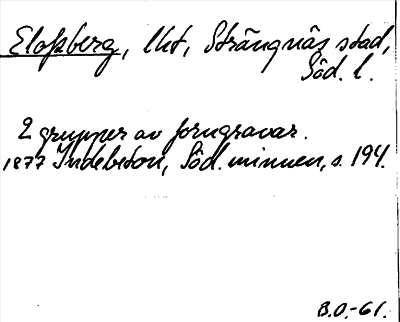 Eloßberg, lht, Strängnäs stad,
Söd. l.
2 grupper av forngravar.
1877 Indebetou, Söd. minnen, s. 194.
B.O.-61.